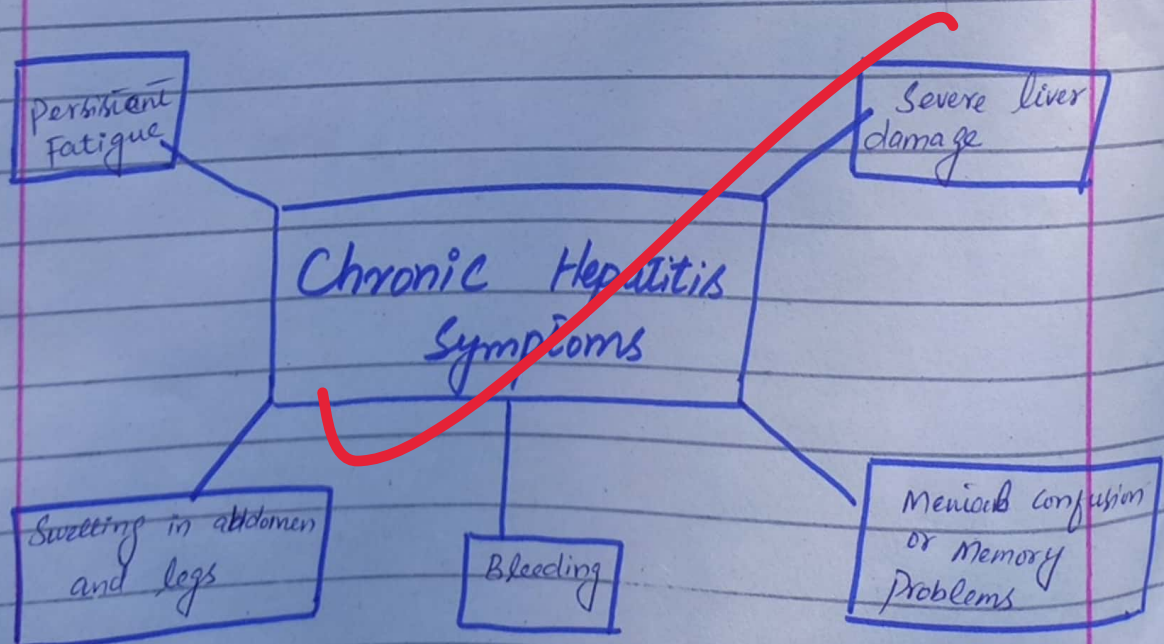 Persistent
Fatigue
Severe liver
damage
Chronic Hepatitis
Symptoms
Swelling in abdomen
and legs
Bleeding
confusion
or Memory
Problems